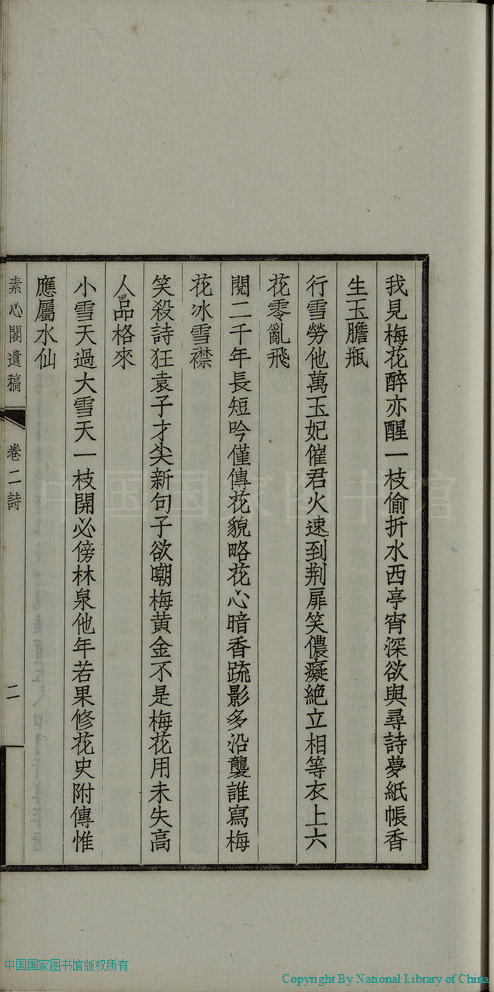 我見梅花醉亦醒一枝偷折水西亭宵深欲與尋詩夢紙帳香
生玉膽瓶
行雪勞他萬玉妃催君火速到荆扉笑儂癡絶立相等衣上六
花零亂飛
閱二千年長短吟僅傳花貌略花心暗香疏影多沿襲誰寫梅
花冰雪襟
笑殺詩狂袁子才尖新句子欲嘲梅黄金不是梅花用未失高
人品格來
小雪天過大雪天一枝開必傍林泉他年若果修花史附傳惟
應屬水仙
素心閣遺稿
卷二詩
二
中国国家图书馆
中国国家图书馆版权所有
Copyright By National Library of China